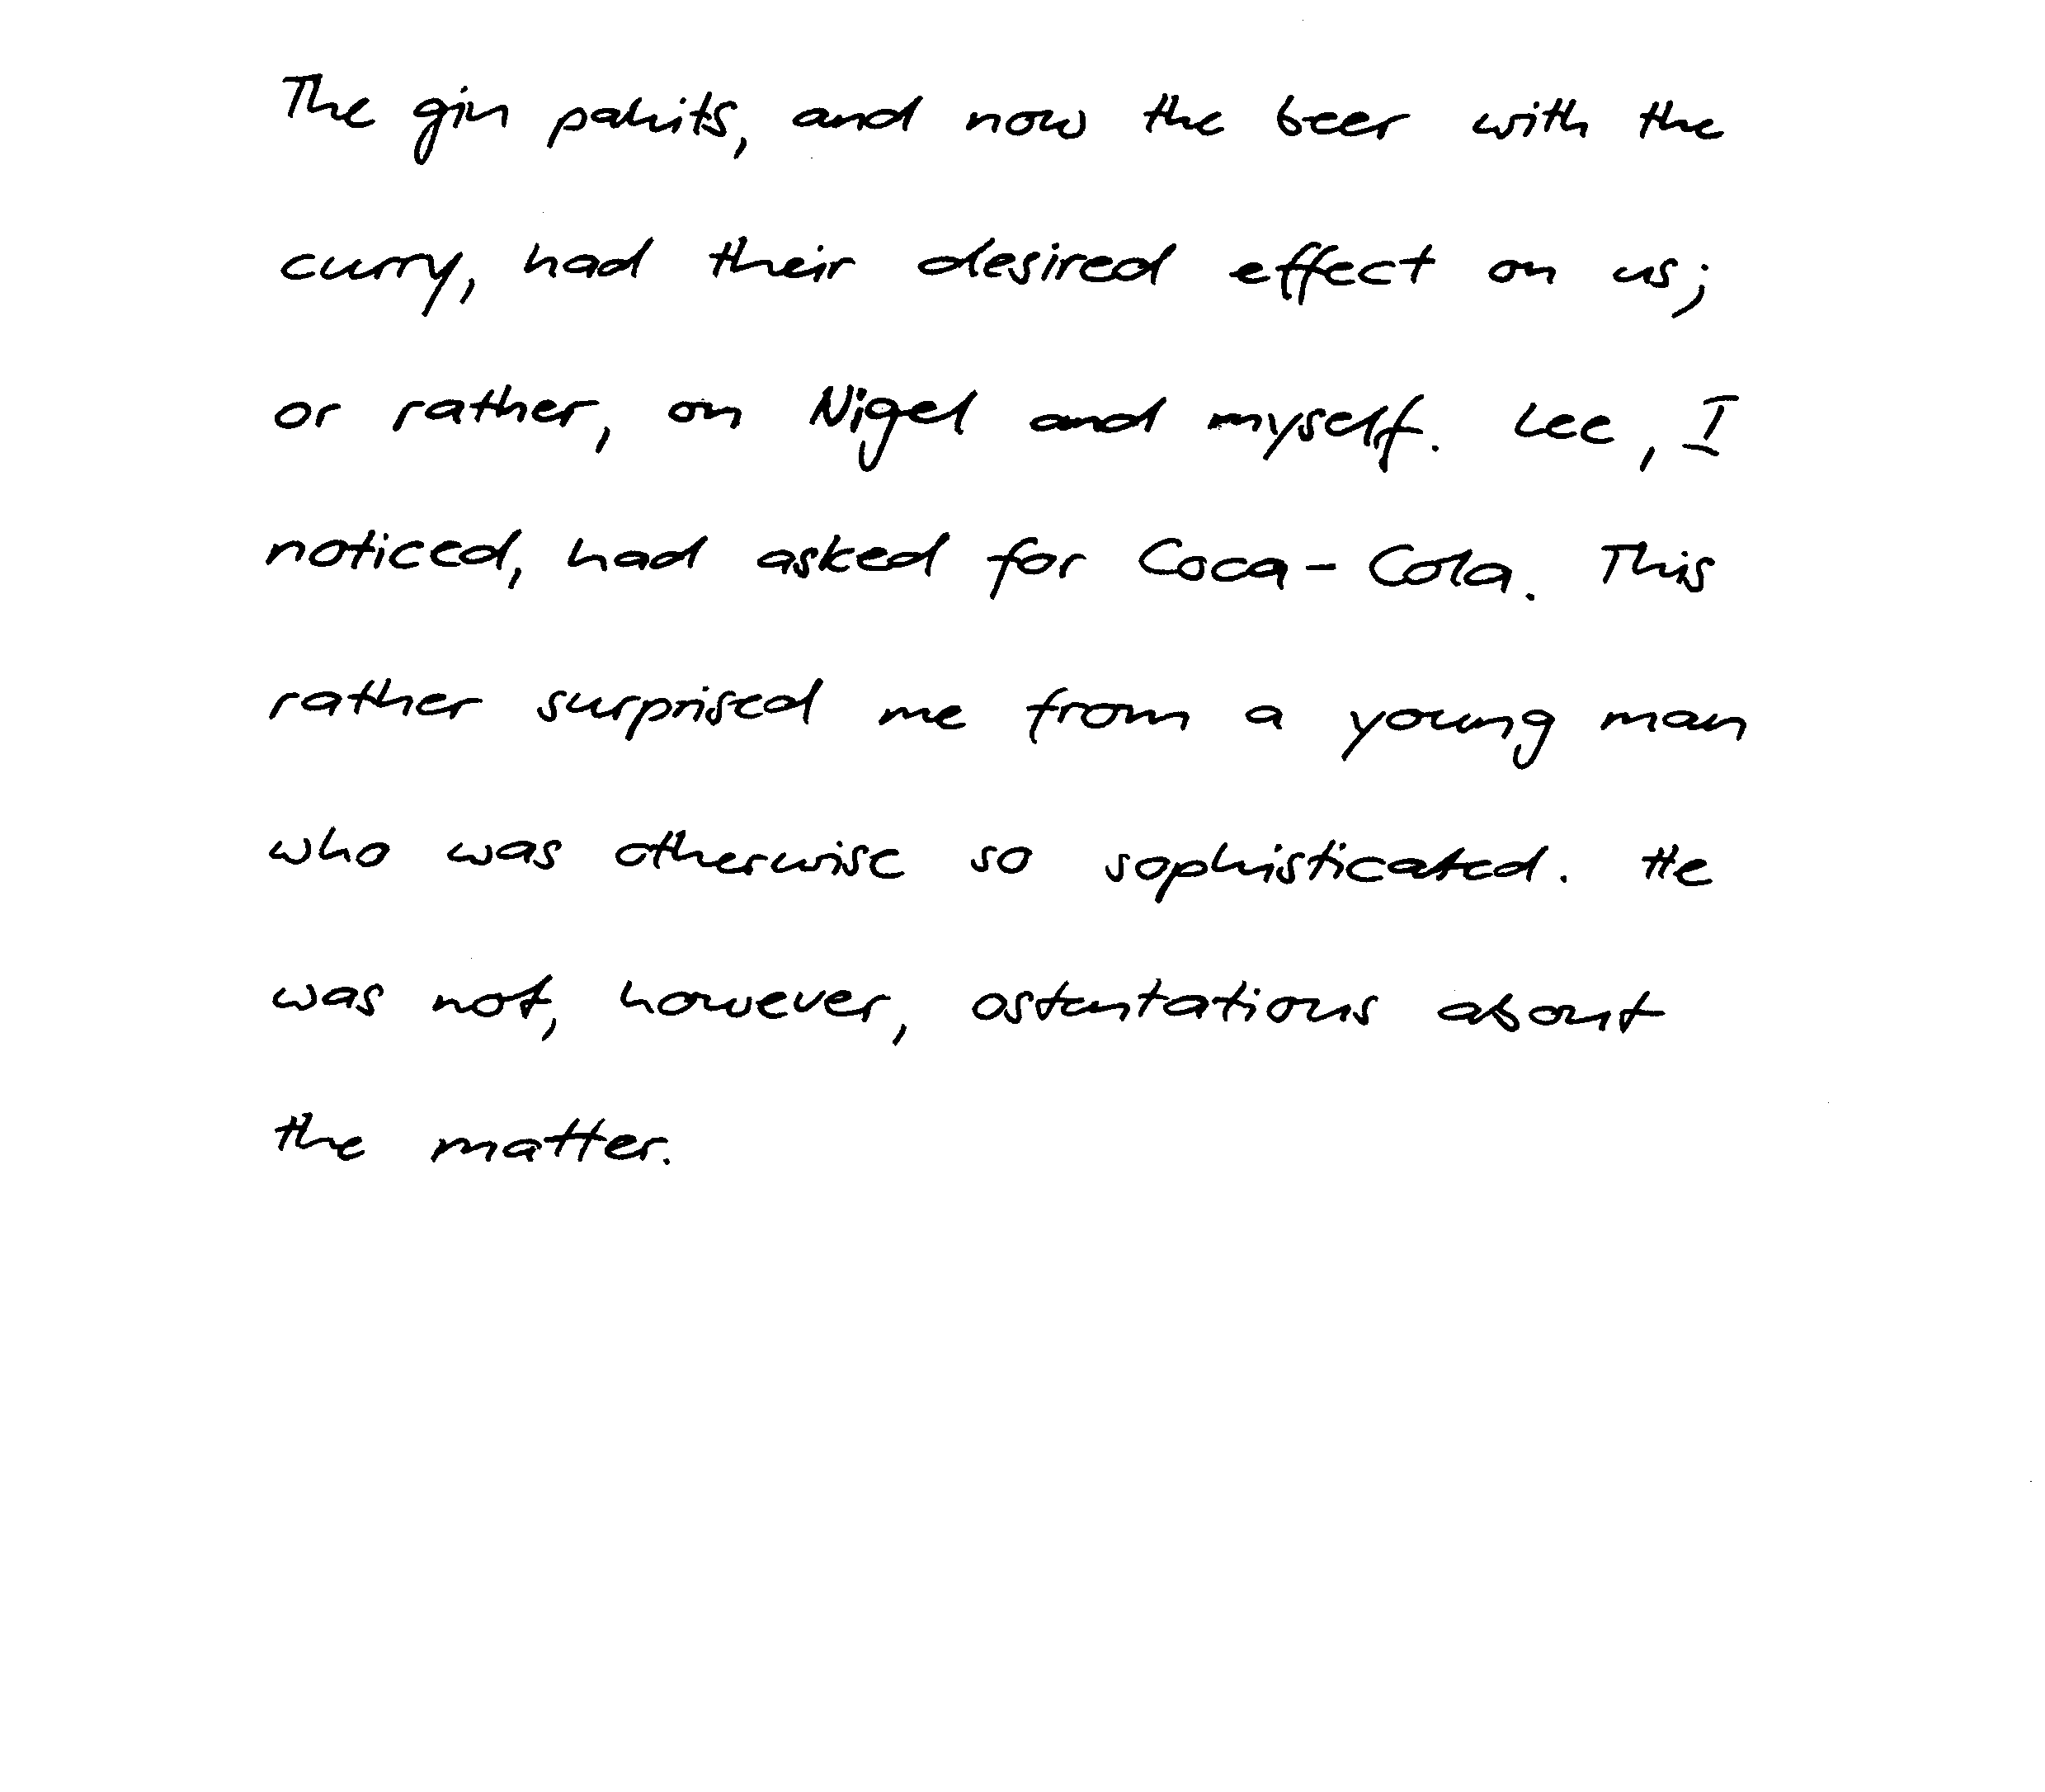 The gin pahits, and now the beer with the
curry, had their desired effect on us;
or rather, on Nigel and myself. Lee, I
noticed, had asked for Coca-Cola. This
rather surprised me from a young man
who was otherwise so sophisticated. He
was not, however, ostentatious about
the matter.